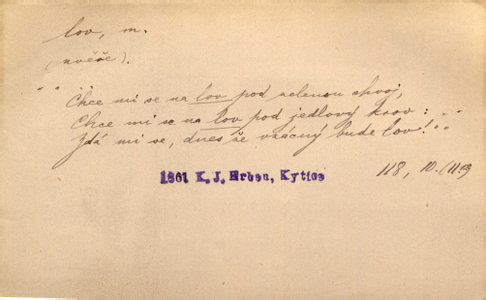 lov, m.
(zvěře).
Chce mi se na lov pod zelenou chvoj,
Chce mi se na lov pod jedlový krov:
Zdá mi se, dnes že vzácný bude lov!
118, 10. (113)
1861 K. J. Erben, Kytice